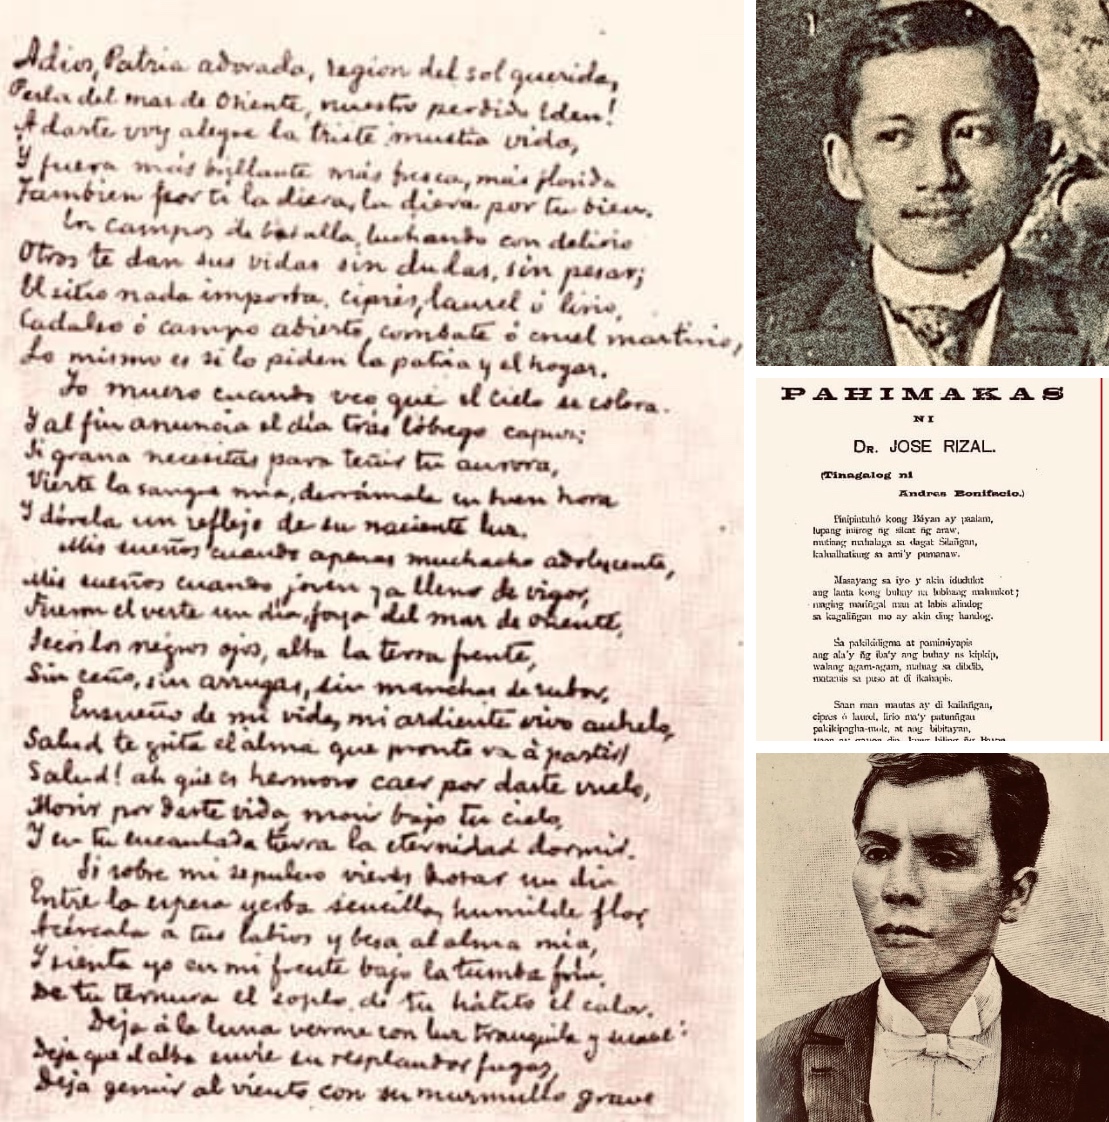 Adios, Patria adorada, region del sol querida,
Perla del mar de Oriente, nuestro perdido Eden!
A darte voy alegre la triste mustia vida,
Y fuera más brillante más fresca, más florida
Tambien por ti la diera, la diera por tu bien.
En campos de batalla, luchando con delirio
Otros te dan sus vidas sin dudas, sin pesar;
El sitio nada importa, ciprés, laurel ó lirio,
Cadalso ó campo abierto, combate ó cruel martirio,
Lo mismo es si lo piden la patria y el hogar.
Yo muero cuando veo que el cielo se colora
Y al fin anuncia el día trás lóbrego capuz;
Si grana necesitas para teñir tu aurora,
Vierte la sangre mía, derrámala en buen hora
Y dórela un reflejo de su naciente luz.
Mis sueños cuando apenas muchacho adolescente,
Mis sueños cuando joven ya lleno de vigor,
Fueron el verte un día, joya del mar de oriente,
Secos los negros ojos, alta la tersa frente,
Sin ceño, sin arrugas, sin manchas de rubor,
Ensueño de mi vida, mi ardiente vivo anhelo,
Salud te grita el alma que pronto va á partir!
Salud! ah que es hermoso caer por darte vuelo,
Morir por darte vida, morir bajo tu cielo,
Y en tu encantada tierra la eternidad dormir.
Si sobre mi sepulcro vieres brotar un dia
Entre la espesa yerba sencilla, humilde flor,
Acércala a tus labios y besa al alma mía,
Y sienta yo en mi frente bajo la tumba fría,
De tu ternura el soplo, de tu hálito el calor.
Deja á la luna verme con luz tranquila y suave:
Deja que el alba envíe su resplandor fugaz,
Deja gemir al viento con su murmullo grave
PAHIMAKAS
NI
DR. JOSE RIZAL.
(Tinagalog ni
Andres Bonifacio.)
Pinipintuhó kong Báyan ay paalam,
lupang iniirog ñg sikat ñg araw,
mutiang mahalaga sa dagat Silañgan,
kalualhatiang sa ami'y pumanaw.
Masayang sa iyo'y akin idudulot
ang lanta kong buhay na lubhang malunkot;
naging mariñgal man at labis alindog
sa kagaliñgan mo ay akin ding handog.
Sa pakikidigma at pamimiyapis
ang ala'y ñg iba'y ang buhay na kipkip,
walang agam-agam, maluag sa dibdib,
matamis sa puso at di ikahapis.
Saan man mautas ay di kailañgan,
cipres ó laurel, lirio ma'y patuñgan
pakikipagha-mok, at ang bibitayan,